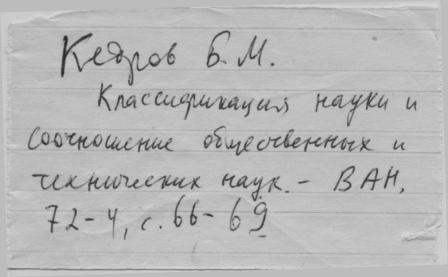 Кедров Б.М.
Классификация науки и
соотношение общественных и
технических наук. – ВАН,
72-4, с. 66-69